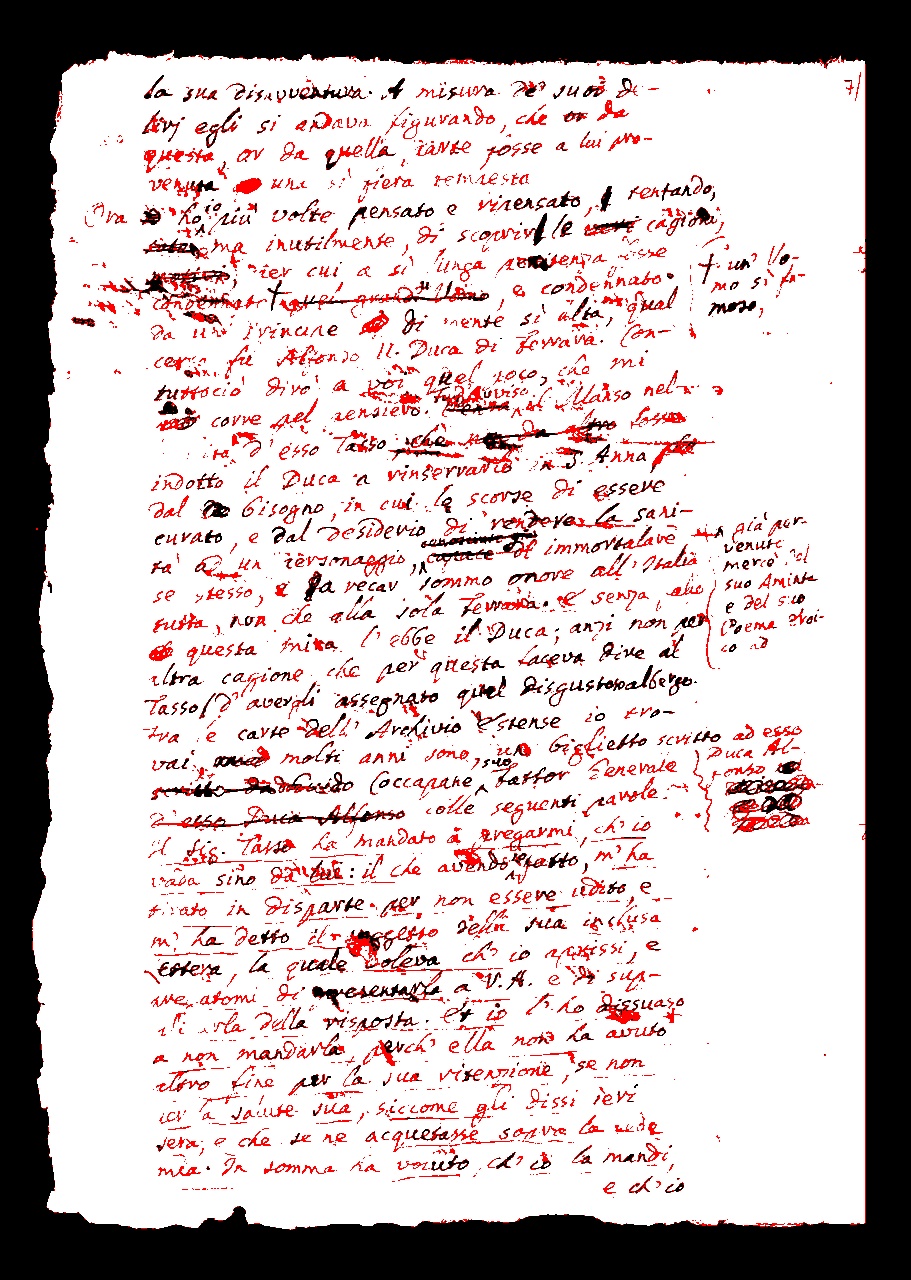 7/
la sua disavventura. A misura de' suoi de-
lirj egli si andava figurando, che or da
questa, or da quella parte fosse a lui pro-
venuta una sì fiera tempesta
Ora ho io più volte pensato e ripensato, tentando,
ma inutilmente, di scoprir le vere cagioni,
per cui a sì lunga penitenza fosse
condennato † quel grand' Uomo, e condennato
† un' Uo-
mo sì fa-
moso,
da un Principe di mente sì alta, qual
certo fu Alfonso II. Duca di Ferrara. Con-
tuttociò dirò a voi quel poco, che mi
corre pel pensiero. Fu d'avviso il Manso nel-
la d' esso Tasso che fosse
indotto il Duca a rinserrarlo in S. Anna
dal bisogno, in cui le scorse di essere
curato, e dal desiderio di rendere la sani-
tà a un personaggio, capace di immortalare
già per-
venuto
mercè del
suo Aminta
e del suo
Poema Eroi-
co ad
se stesso, e fa recar sommo onore all' Italia
tutta, non che alla sola Ferrara. E senza
questa mira l' ebbe il Duca; anzi non per
altra cagione, che per questa faceva dire al
Tasso d' avergli assegnato quel disgustoso albergo.
Tra le carte dell' Archivio Estense io tro-
vai, molti anni sono, un biglietto scritto ad esso
Duca Al-
fonso
scritto da Guido Coccapane suo Fattor Generale
d' esso Duca Alfonso colle seguenti parole.
Il Sig. Tasso ha mandato a pregarmi, ch' io
vada sino da lui: il che avendo fatto, m' ha
tirato in disparte per non essere udito, e
m' ha detto il soggetto della sua inclusa
lettera, la quale voleva ch' io aprissi, e
di presentarla a V. A. e di sup-
della risposta. Et io l' ho dissuaso
a non mandarla, perch' ella non ha avuto
altro fine per la sua ritenzione, se non
per la salute sua, siccome gli dissi jeri
sera, e che se ne acquetasse sopra la fede
mia. In somma ha voluto, ch' io la mandi,
e ch' io